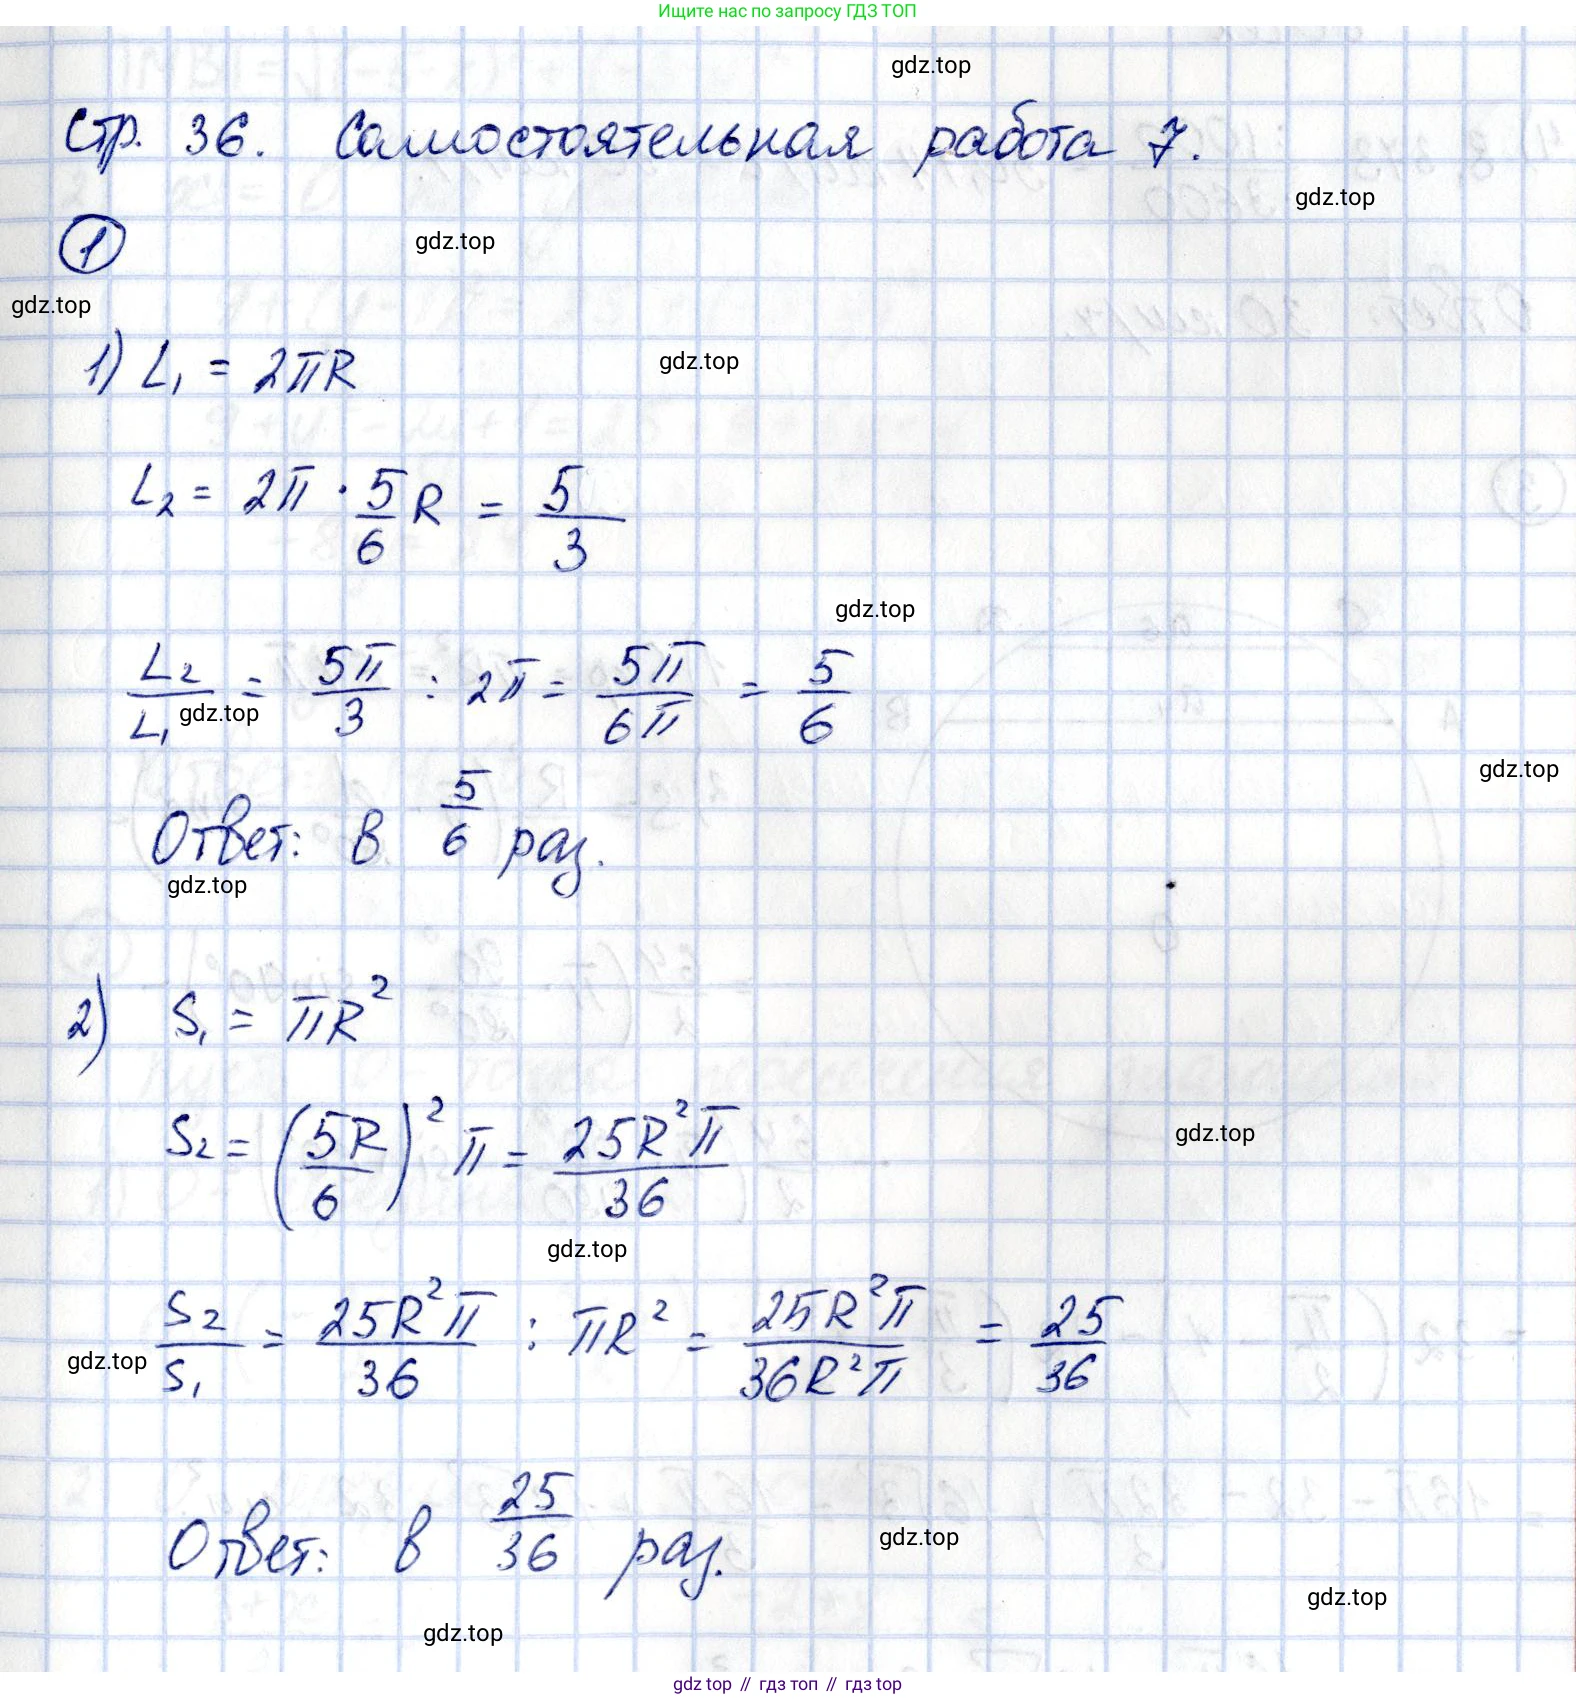 Ищите нас по запросу ГДЗ ТОП
gdz.top
Стр. 36. Самостоятельная работа 7.
gdz.top
1
gdz.top
gdz.top
1) L₁ = 2πR
gdz.top
L₂ = 2π · 5/6 R = 5/3
gdz.top
L₂/L₁ = 5π/3 : 2π = 5π/6π = 5/6
gdz.top
gdz.top
Ответ: в 5/6 раз.
gdz.top
2) S₁ = πR²
S₂ = (5R/6)² π = 25R²π/36
gdz.top
gdz.top
S₂/S₁ = 25R²π/36 : πR² = 25R²π/36R²π = 25/36
gdz.top
Ответ: в 25/36 раз.
gdz.top
gdz.top
gdz.top
gdz top // гдз топ // gdz top